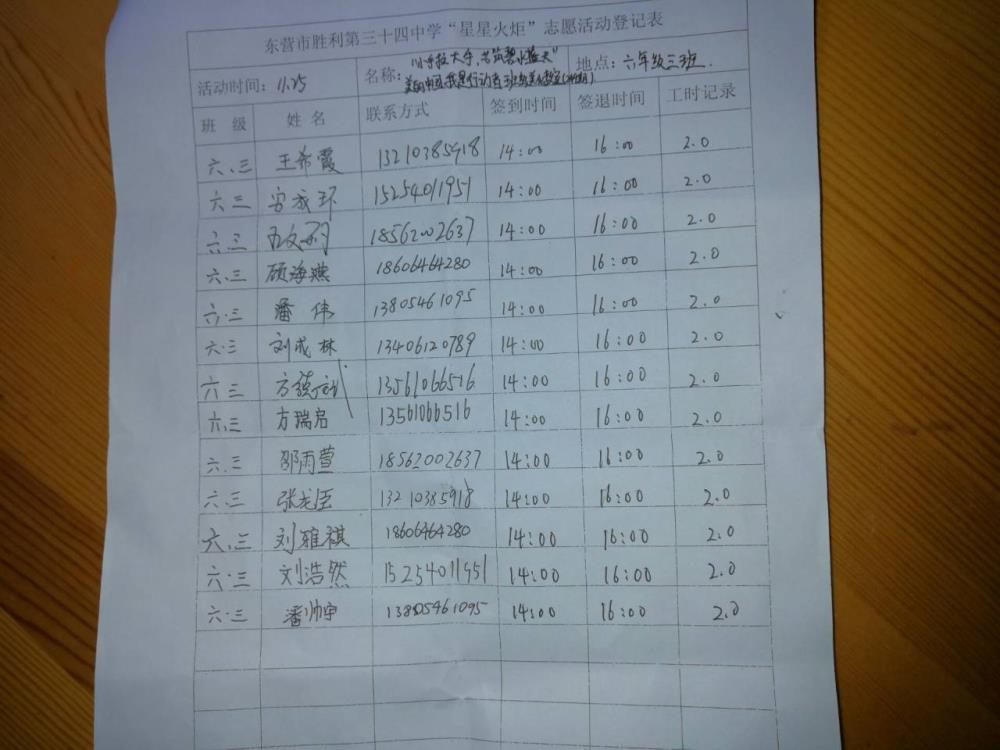 东营市胜利第三十四中学“星星火炬”志愿活动登记表
活动时间：11.25 名称：“小手拉大手，共筑碧水蓝天” 地点：六年级三班.
美丽中国我是行动者
班级 姓名 联系方式 签到时间 签退时间 工时记录
六.三 王希霞 13210385918 14:00 16:00 2.0
六三 安成环 15254011951 14:00 16:00 2.0
六.三 18562002637 14:00 16:00 2.0
六.三 顾海燕 18606464280 14:00 16:00 2.0
六.三 潘伟 13805461095 14:00 16:00 2.0
六.三 刘成林 13406120789 14:00 16:00 2.0
六三 方 13561066516 14:00 16:00 2.0
六.三 方瑞启 13561066516 14:00 16:00 2.0
六.三 邵雨萱 18562002637 14:00 16:00 2.0
六.三 张龙臣 13210385918 14:00 16:00 2.0
六.三 刘雅祺 18606464280 14:00 16:00 2.0
六.三 刘浩然 15254011951 14:00 16:00 2.0
六.三 潘帅宇 13805461095 14:00 16:00 2.0